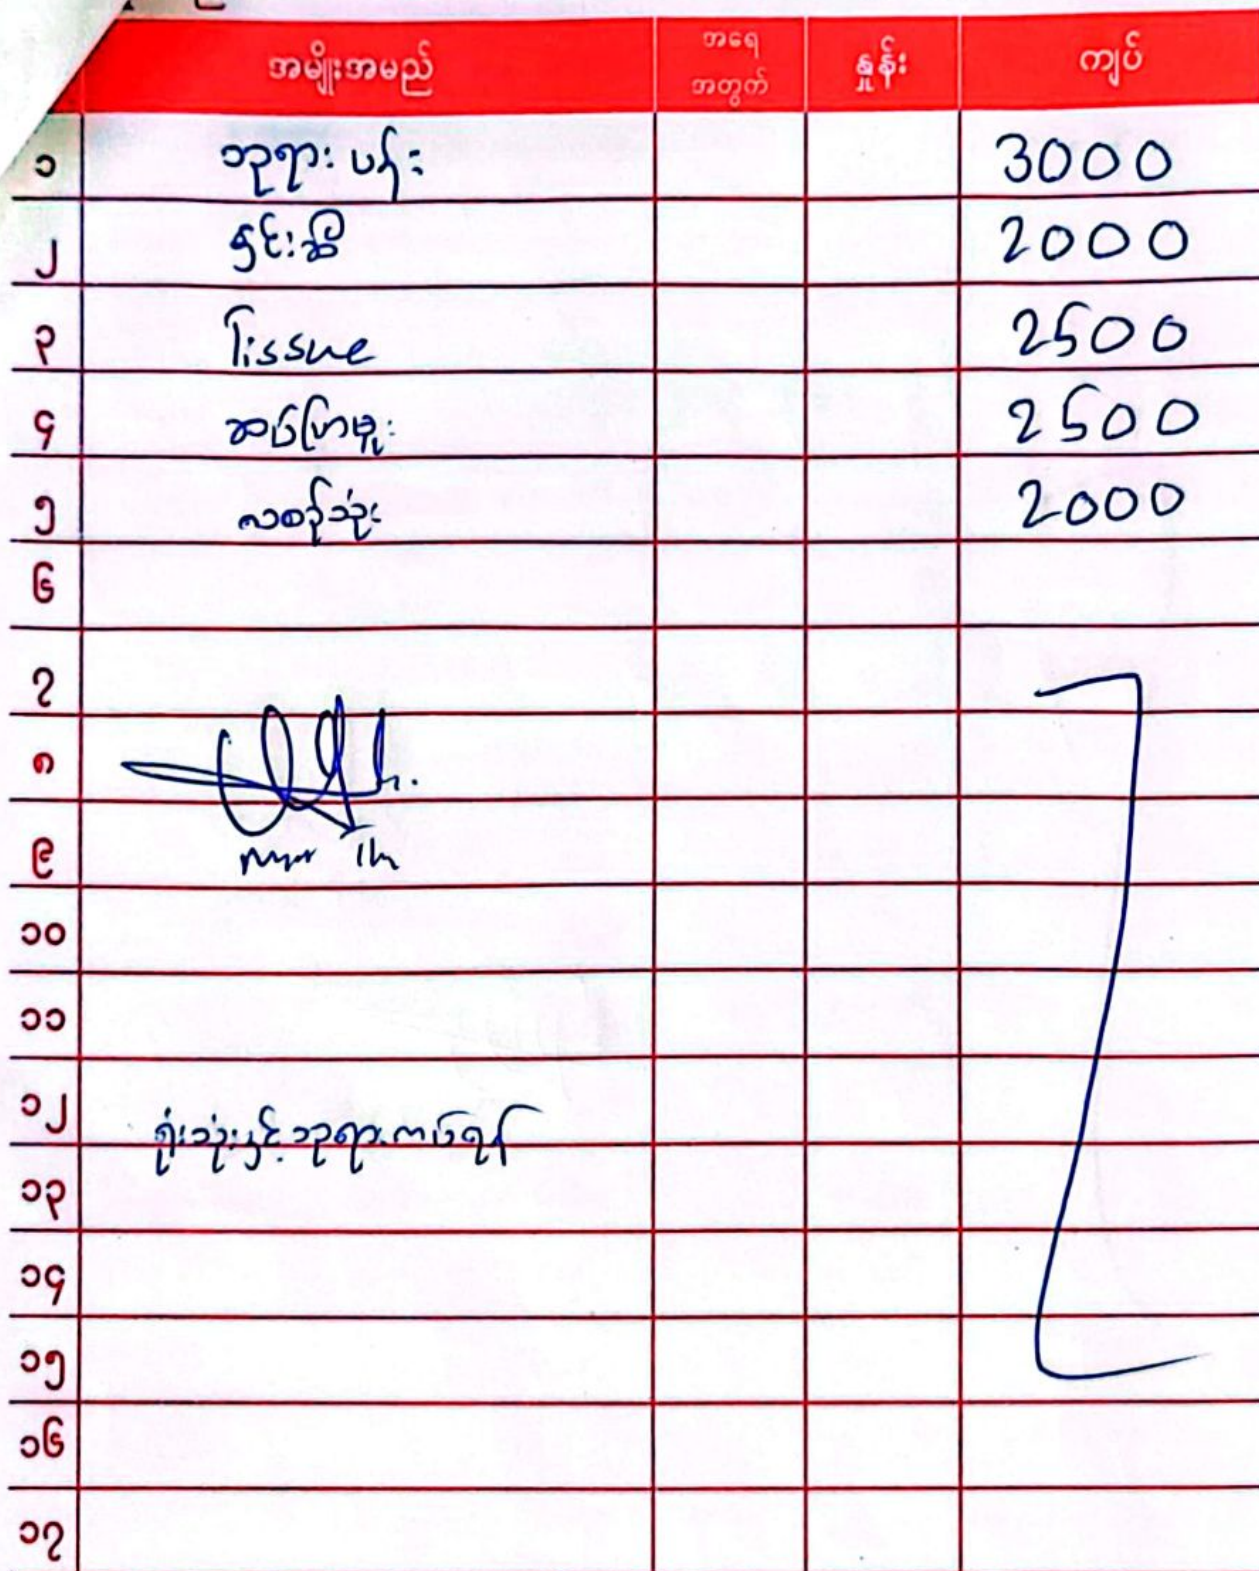 အမျိုးအမည် အရေအတွက် နှုန်း ကျပ်
၁ ဘုရားပန်း 3000
၂ 2000
၃ Tissue 2500
၄ ဆပ်ပြာမှု: 2500
၅ လစဉ်သုံး 2000
၆
၇
၈
၉
၁၀
၁၁
၁၂ ရုံးသုံးနှင့် ဘုရားကပ်ရန်
၁၃
၁၄
၁၅
၁၆
၁၇